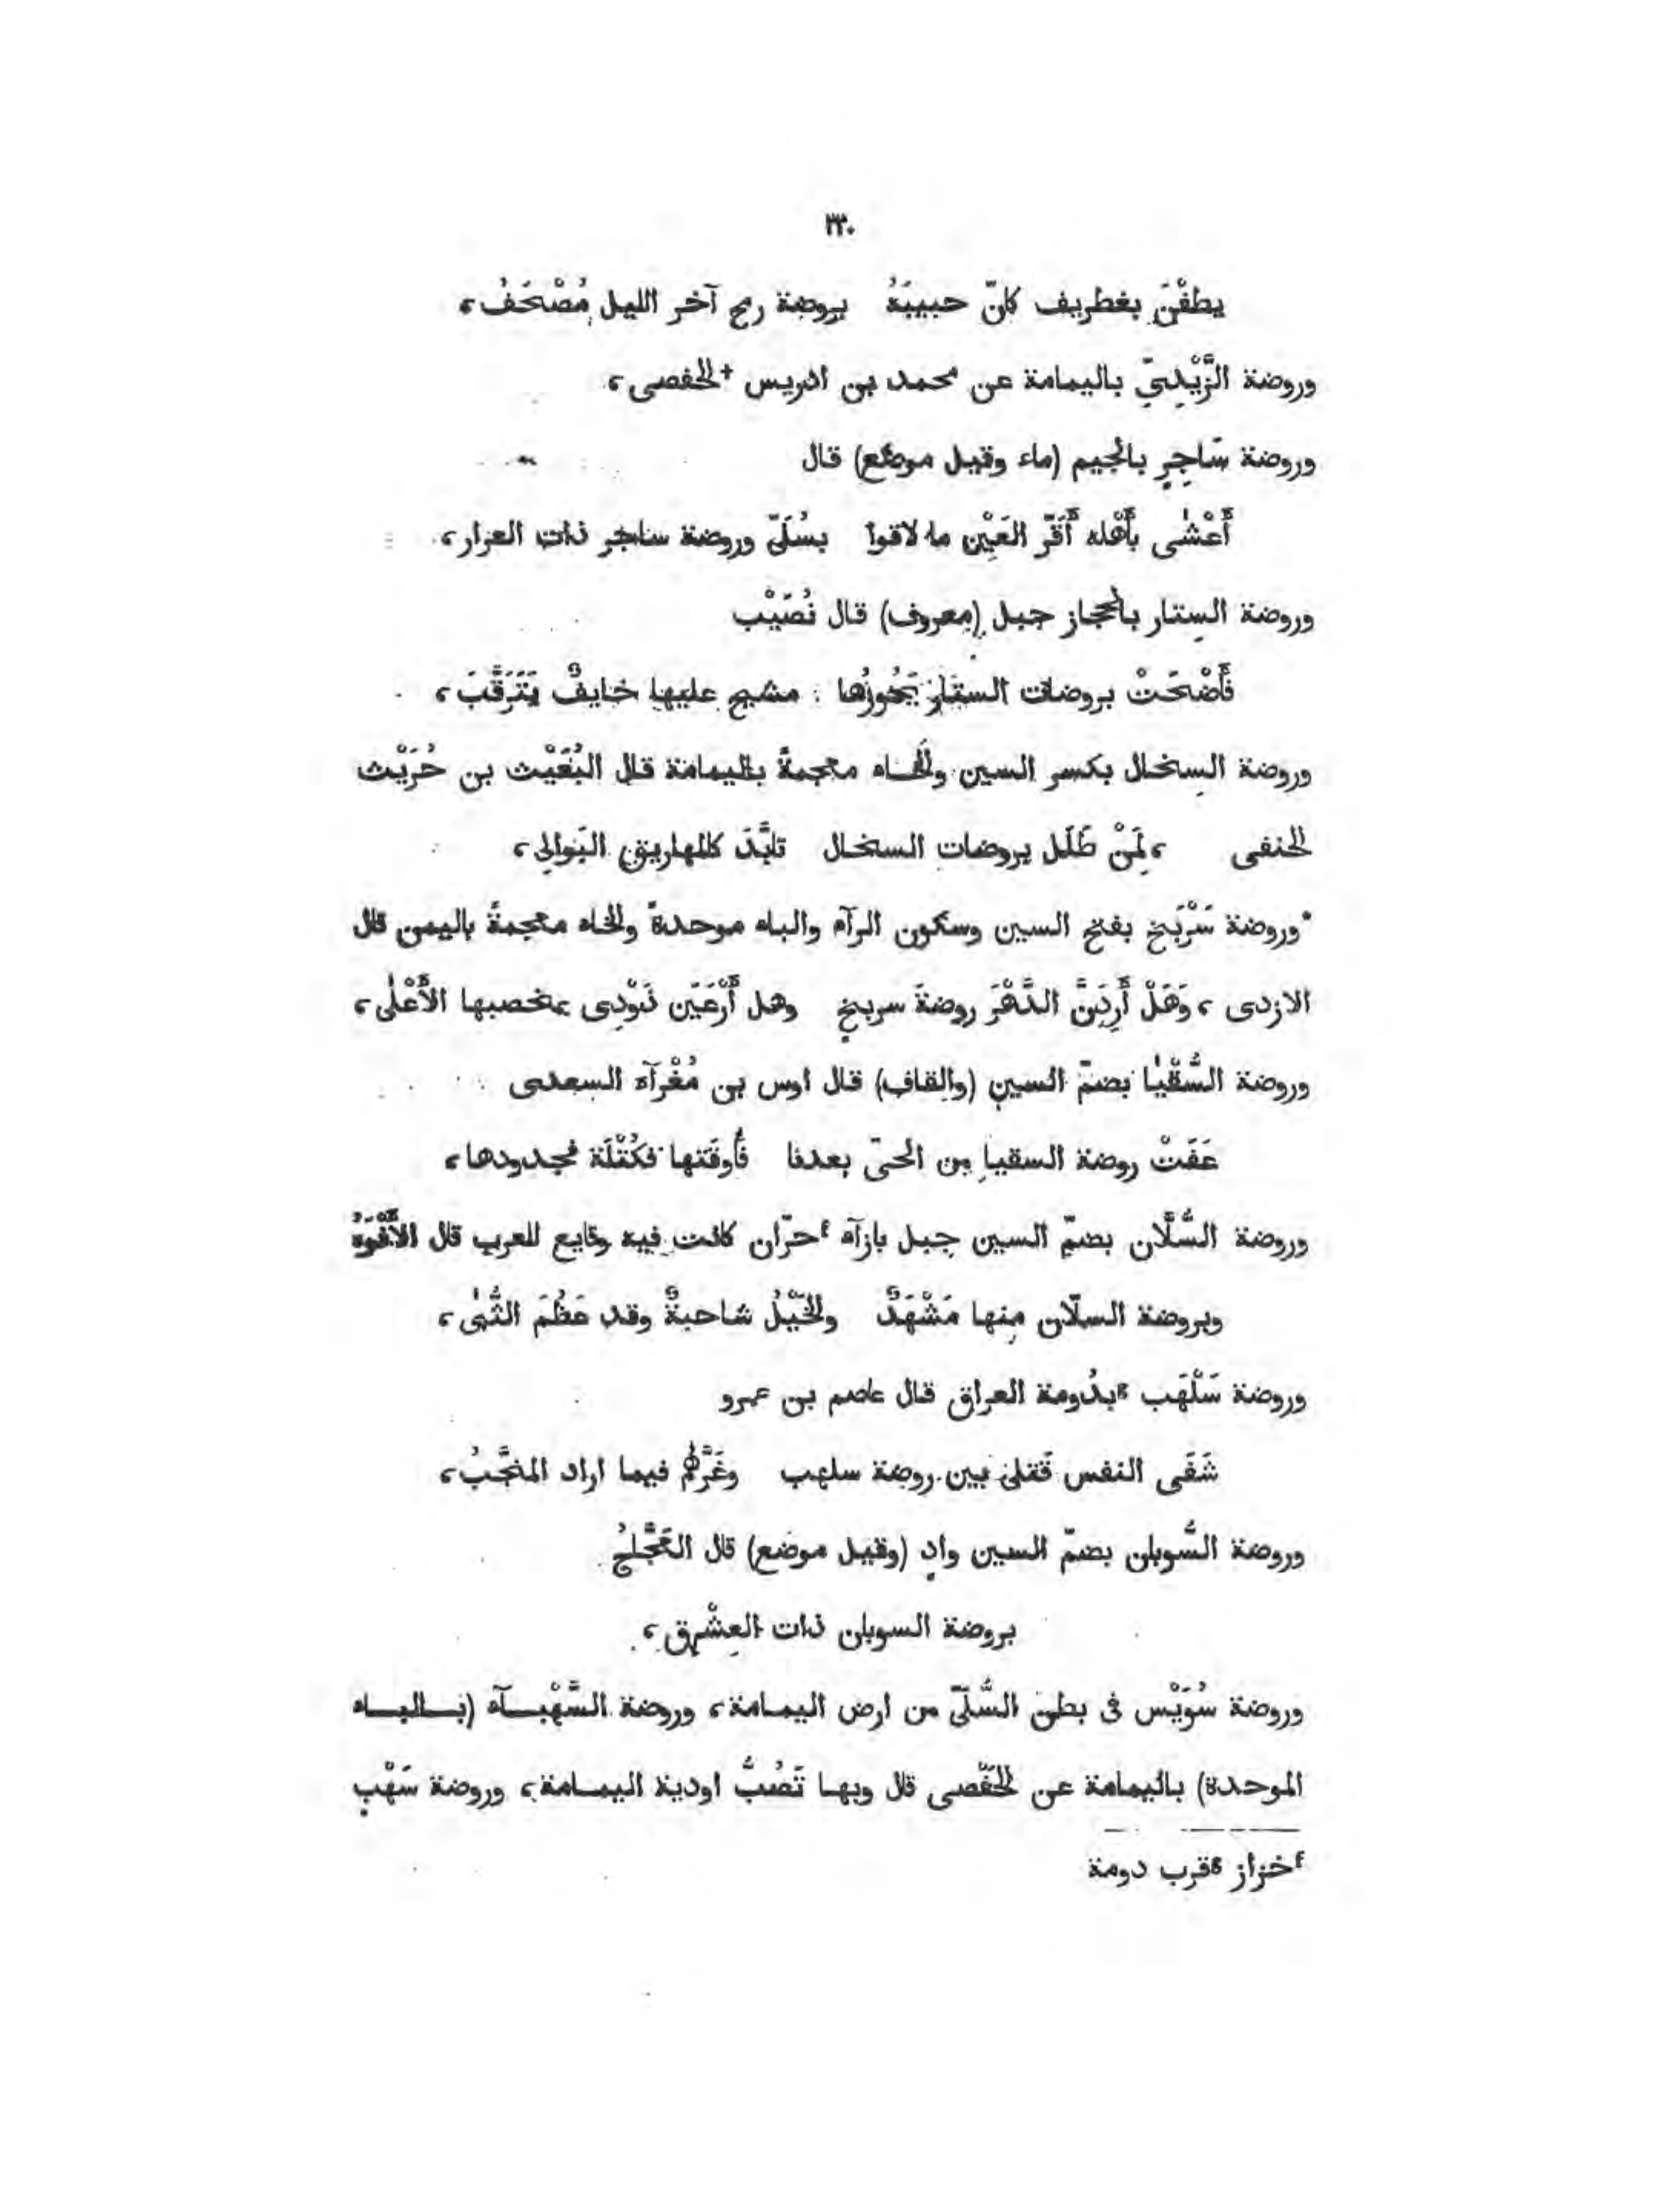 ٢٣٠
يطفْنَ بغطريف كانّ حبيبَهُ بروضة رمح آخر الليل مُصْحَفُ،
وروضة الزَّيْدِيّ باليمامة عن محمد بن ادريس + الحفصى،
وروضة سَاجِرٍ بالجيم (ماء وقيل موضع) قال
أَعْشٰى بأَهْله أَقَرّ العَيْن ما لاقوا بسُلَىّ وروضة ساجر ذات العرار،
وروضة السِتار بالحجاز جبل (معروف) قال نُصَيْب
فأَضْحَتْ بروضات الستار يَحُوزُها مشيح عليها خايفٌ يَتَرَقَّبَ،
وروضة السِخال بكسر السين والخاء معجمةً باليمامة قال البُعَيْث بن حُرَيْث
الحنفى ، لِمَنْ طَلَل بروضات السخال تابَّدَ كالمهاريق البَوالِى،
*وروضة سَرْبَخ بفتح السين وسكون الرآء والباء موحدةً والخاء معجمةً باليمن قال
الازدى ، وَهَلْ أَرِدَنَّ الدَّهْرَ روضةَ سربخٍ وهل أَرْعَيَن ذَوْدِى بمخصبها الأَعْلٰى،
وروضة السُّقْيٰا بضمّ السين (والقاف) قال اوس بن مُغْرآء السعدى
عَفَتْ روضة السقيا من الحىّ بعدنا فأُوقَتها فكُتْلَة فجدودها،
وروضة السُّلَّان بضمّ السين جبل بازآء ᶠحرّان كانت فيه وقايع للعرب قال الأَفْوَهُ
وبروضة السلّان منها مَشْهَدٌ والخَيْلُ شاحبةٌ وقد عَظُمَ الثُّبٰى،
وروضة سَلْهَب ᵍبدُومة العراق قال عاصم بن عمرو
شَفَى النفس قَتلى بين روضة سلهب وغَرَّهُم فيما اراد المنجَّبُ،
وروضة السُّوبان بضمّ السين وادٍ (وقيل موضع) قال العَجَّاجُ
بروضة السوبان ذات العِشْرِق،
وروضة سُوَيْس فى بطن السُّلَىّ من ارض اليمامة، وروضة السَّهْبــآء (بــالبــاء
الموحدة) باليمامة عن الحَفْصى قال وبها تَصُبُّ اودية اليمــامة، وروضة سَهْبٍ
ᶠخزاز ᵍقرب دومة